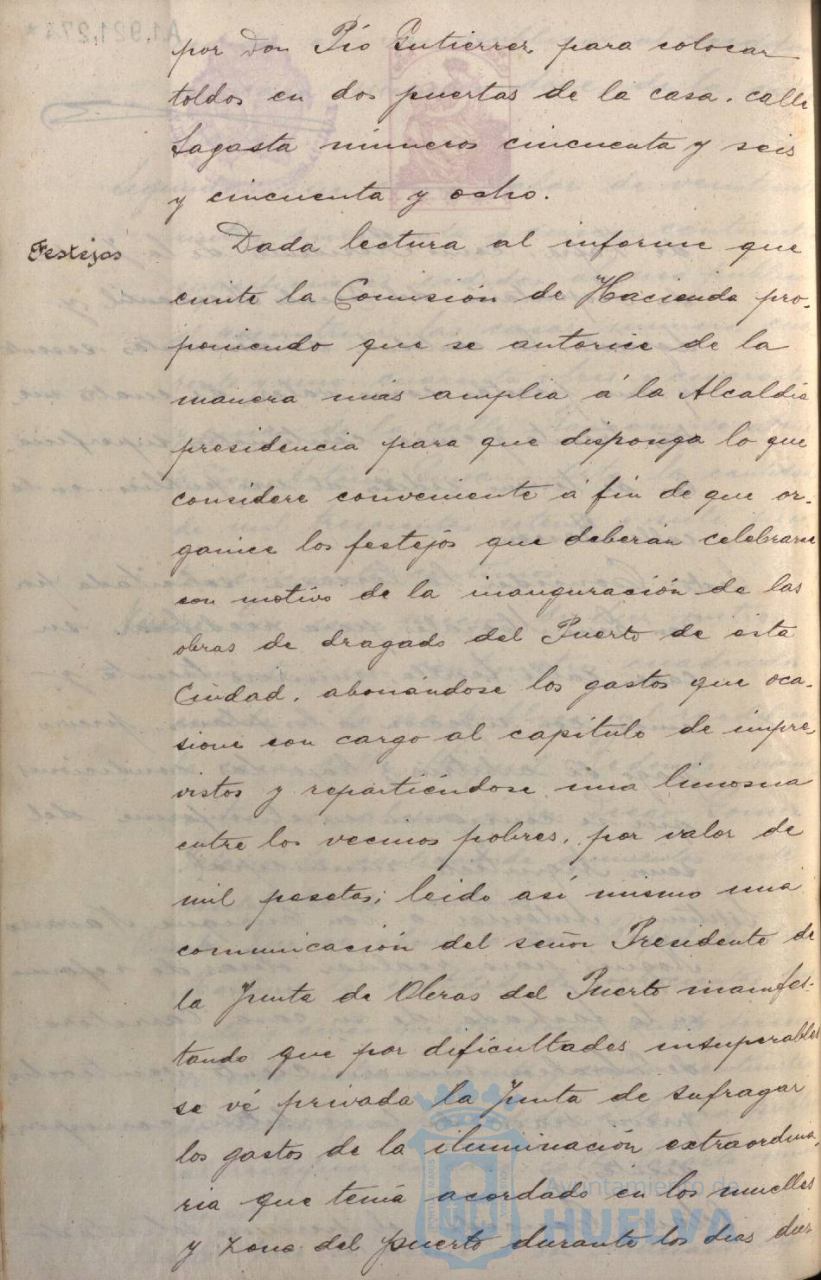 A1.921.274*
por Don Pío Gutierrez para colocar
toldos en dos puertas de la casa, calle
Sagasta números cincuenta y seis
y cincuenta y ocho.
Festejos
Dada lectura al informe que
emite la Comisión de Hacienda pro-
poniendo que se autorice de la
manera más amplia á la Alcaldía
presidencia para que disponga lo que
considere conveniente á fin de que or-
ganice los festejos que deberán celebrarse
con motivo de la inauguración de las
obras de dragado del Puerto de esta
Ciudad, abonándose los gastos que oca-
sione con cargo al capítulo de impre
vistos y repartiéndose una limosna
entre los vecinos pobres, por valor de
mil pesetas; leido así mismo una
comunicación del señor Presidente de
la Junta de Obras del Puerto manifes-
tando que por dificultades insuperables
se vé privada la Junta de sufragar
los gastos de la iluminación extraordina-
ria que tenía acordado en los muelles
y zona del puerto durante los dias diez
Ayuntamiento de
HUELVA